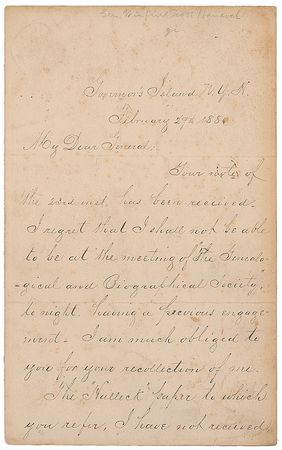 Gen Winfield Scott Hancock
Governor's Island N.Y.H.
February 27th 1880
My Dear General:
Your note of
the 23rd inst. has been received.
I regret that I shall not be able
to be at the meeting of "The Genealo-
-gical and Biographical Society,
to night, having a previous engage-
ment - I am much obliged to
you for your recollection of me.
The "Halleck" paper to which
you refer, I have not received,